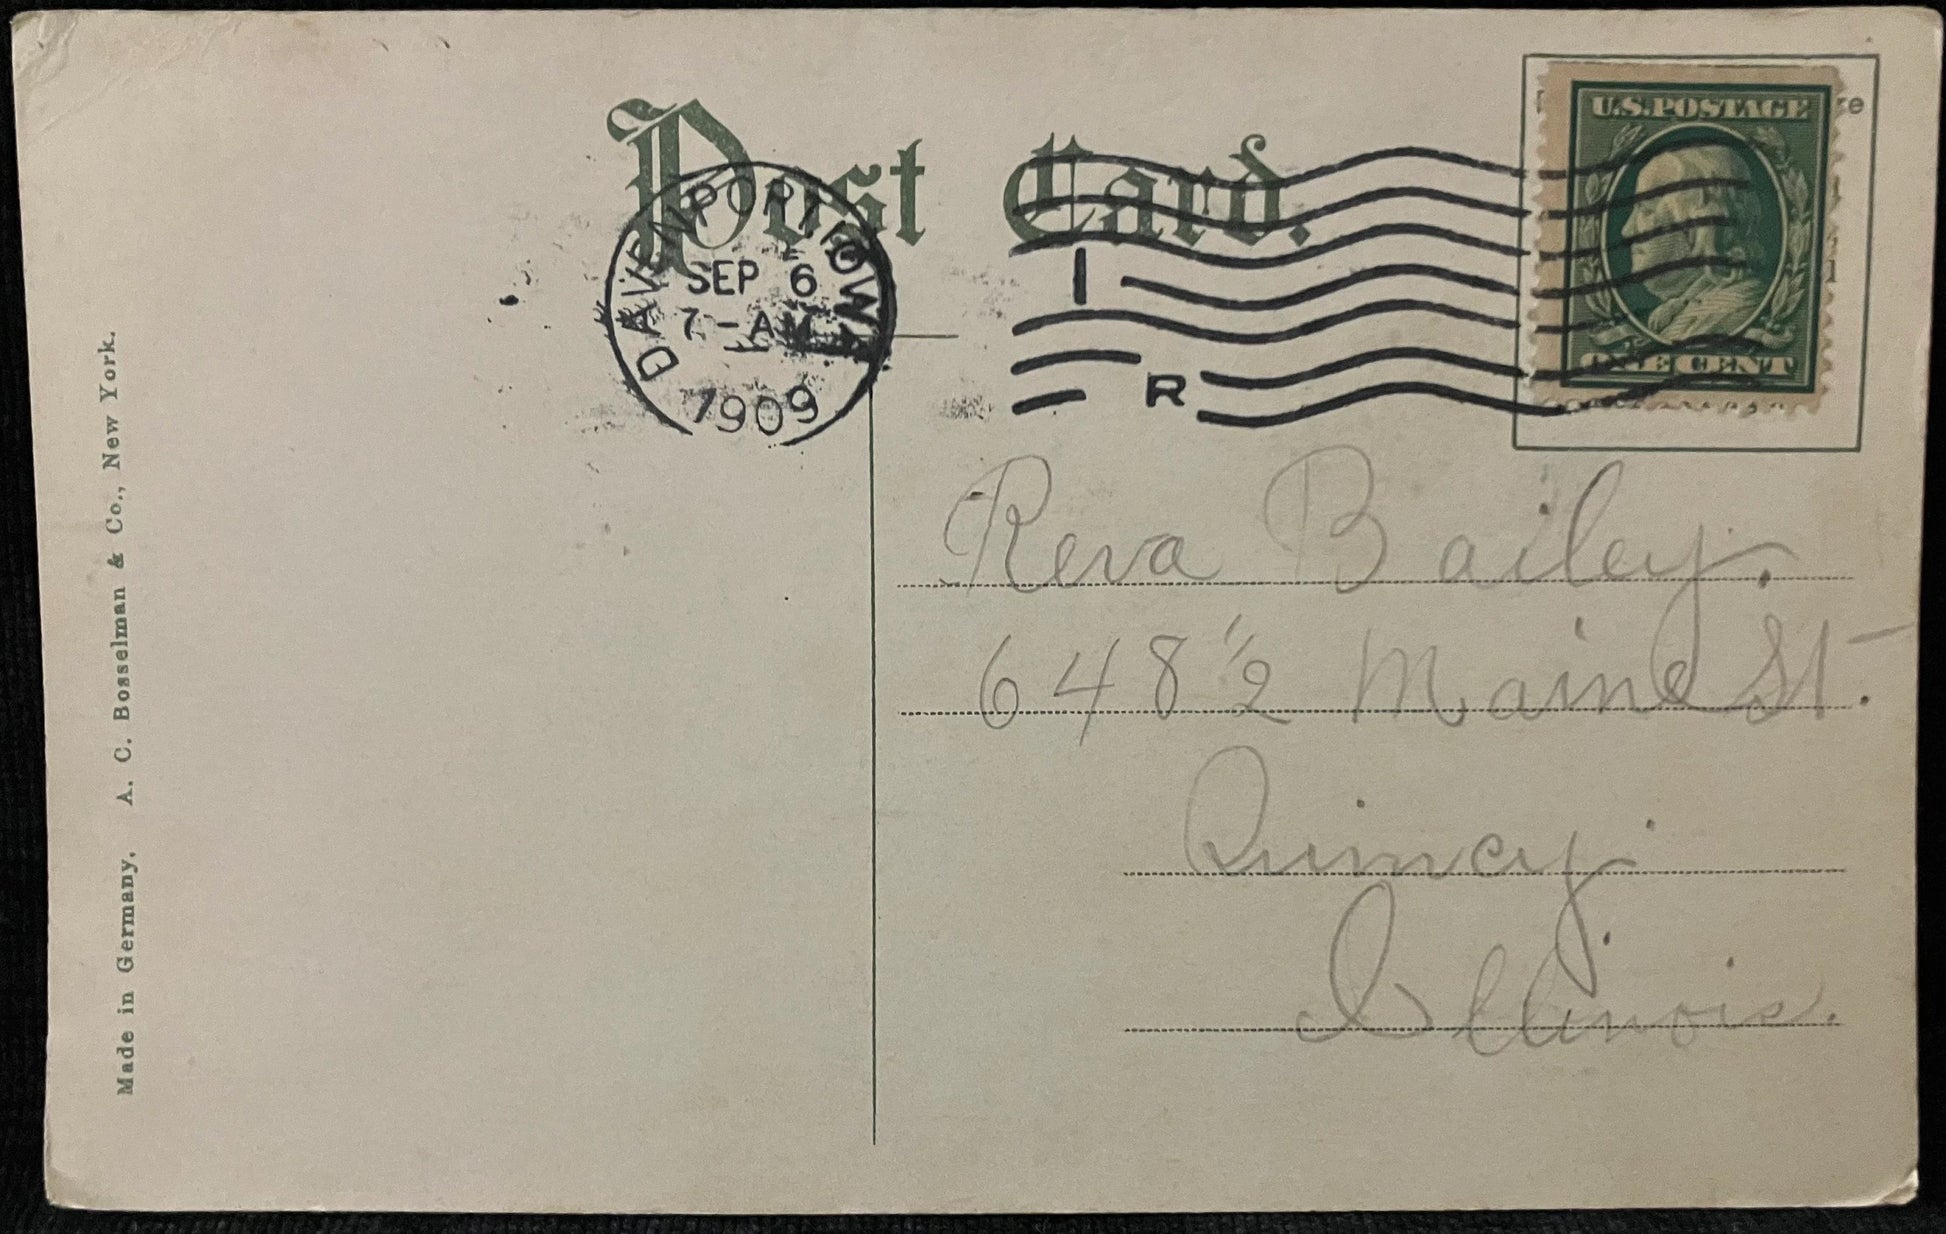 Post Card.
DAVENPORT, IOWA
SEP 6
7-AM
1909
I
R
U.S. POSTAGE
ONE CENT
Reva Bailey.
648 1/2 Maine St.
Quincy.
Illinois.
Made in Germany. A. C. Bosselman & Co., New York.